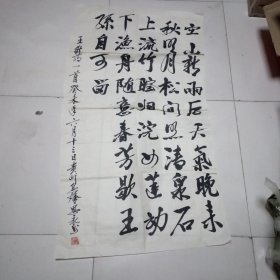 空山新雨后天气晚来
秋明月松间照清泉石
上流竹喧归浣女莲动
下渔舟随意春芳歇王
孙自可留
王维诗一首癸未年六月十三日